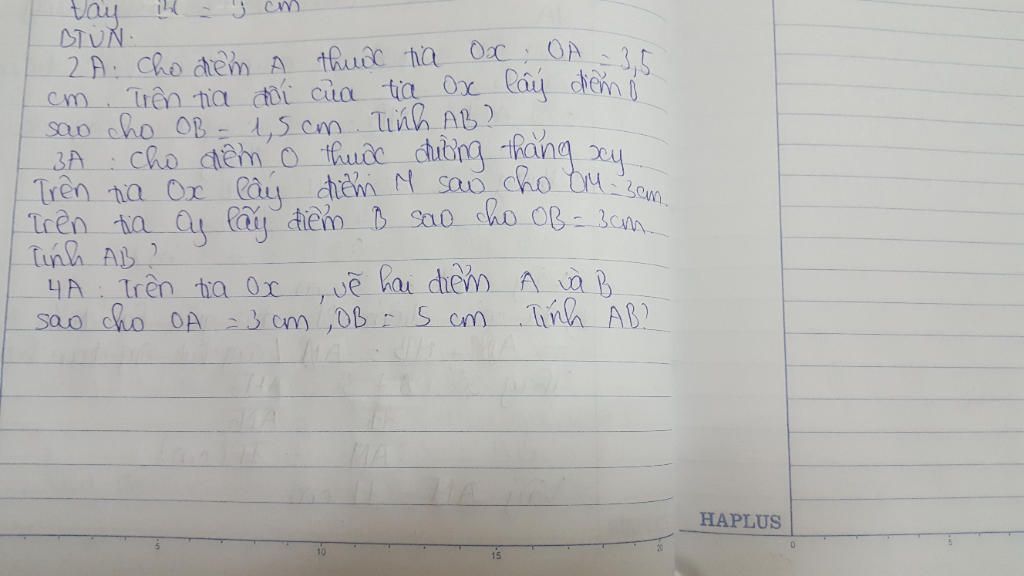 Vậy = 3 cm
BTVN:
2A: Cho điểm A thuộc tia Ox; OA = 3,5
cm. Trên tia đối của tia Ox lấy điểm B
sao cho OB = 1,5 cm. Tính AB?
3A: Cho điểm O thuộc đường thẳng xy.
Trên tia Ox lấy điểm M sao cho OM = 3cm.
Trên tia Oy lấy điểm B sao cho OB = 3cm.
Tính AB?
4A: Trên tia Ox, vẽ hai điểm A và B
sao cho OA = 3 cm, OB = 5 cm. Tính AB?
HAPLUS
5 10 15 20 0 5